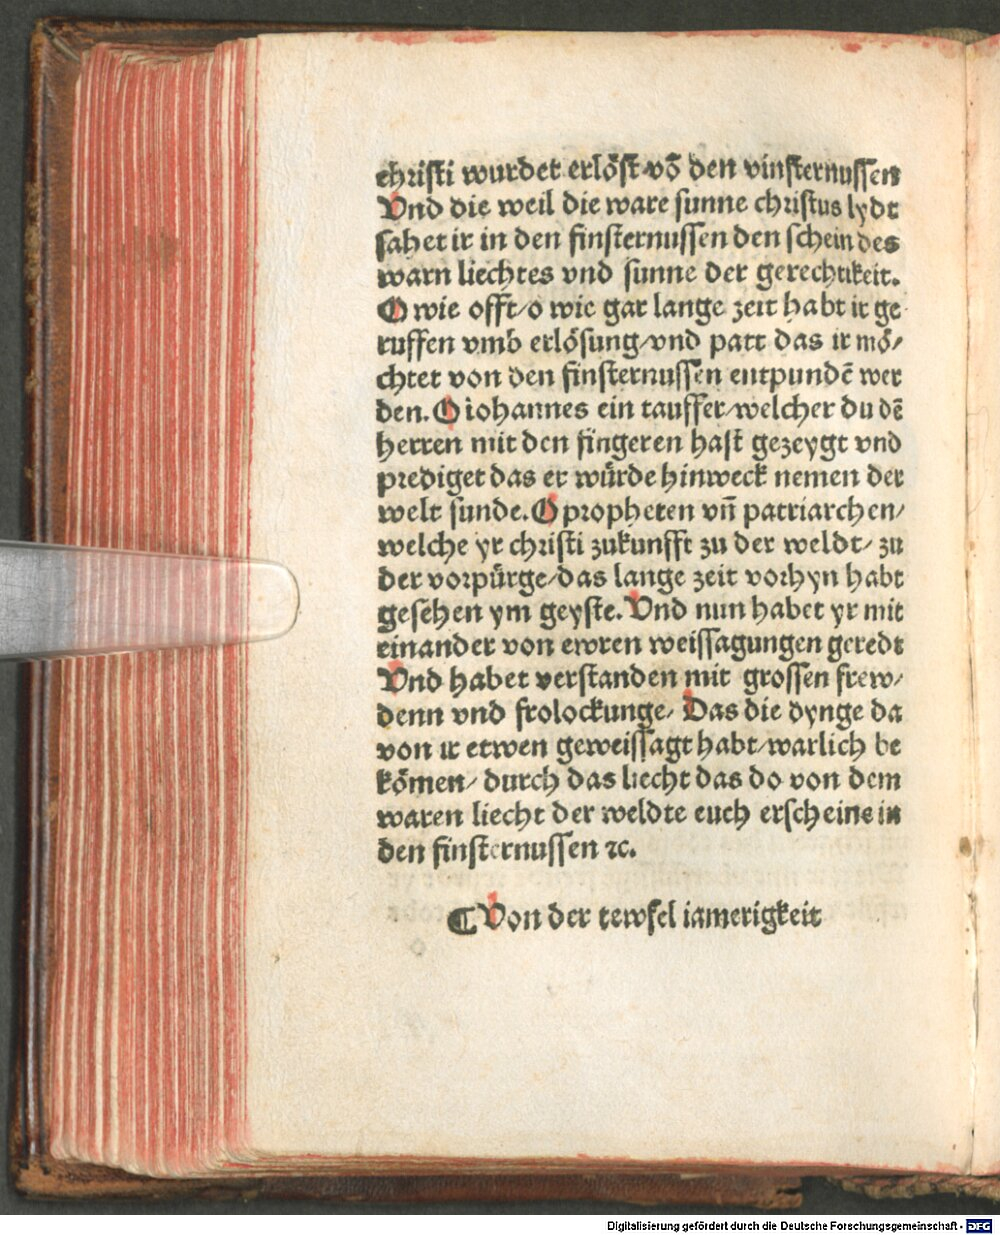 chriſti wurdet erlöſt võ den vinſternuſſen
Vnd die weil die ware ſunne chriſtus lydt
ſahet ir in den finſternuſſen den ſchein des
warn liechtes vnd ſunne der gerechtikeit.
O wie offt/o wie gar lange zeit habt ir ge
ruffen vmb erlöſung/vnd patt das ir mö/
chtet von den finſternuſſen entpundē wer
den. O iohannes ein tauffer/welcher du dē
herren mit den fingeren haſt gezeygt vnd
prediget das er würde hinweck nemen der
welt ſunde. O propheten vn̄ patriarchen/
welche yr chriſti zukunfft zu der weldt/ zu
der vorpürge/das lange zeit vorhyn habt
geſehen ym geyſte. Vnd nun habet yr mit
einander von ewren weiſſagungen geredt
Vnd habet verſtanden mit groſſen frew/
denn vnd frolockunge/ Das die dynge da
von ir etwen geweiſſagt habt/warlich be
kömen/ durch das liecht das do von dem
waren liecht der weldte euch erſcheine in
den finſternuſſen ⁊c.
¶ Von der tewfel iamerigkeit
Digitalisierung gefördert durch die Deutsche Forschungsgemeinschaft - DFG